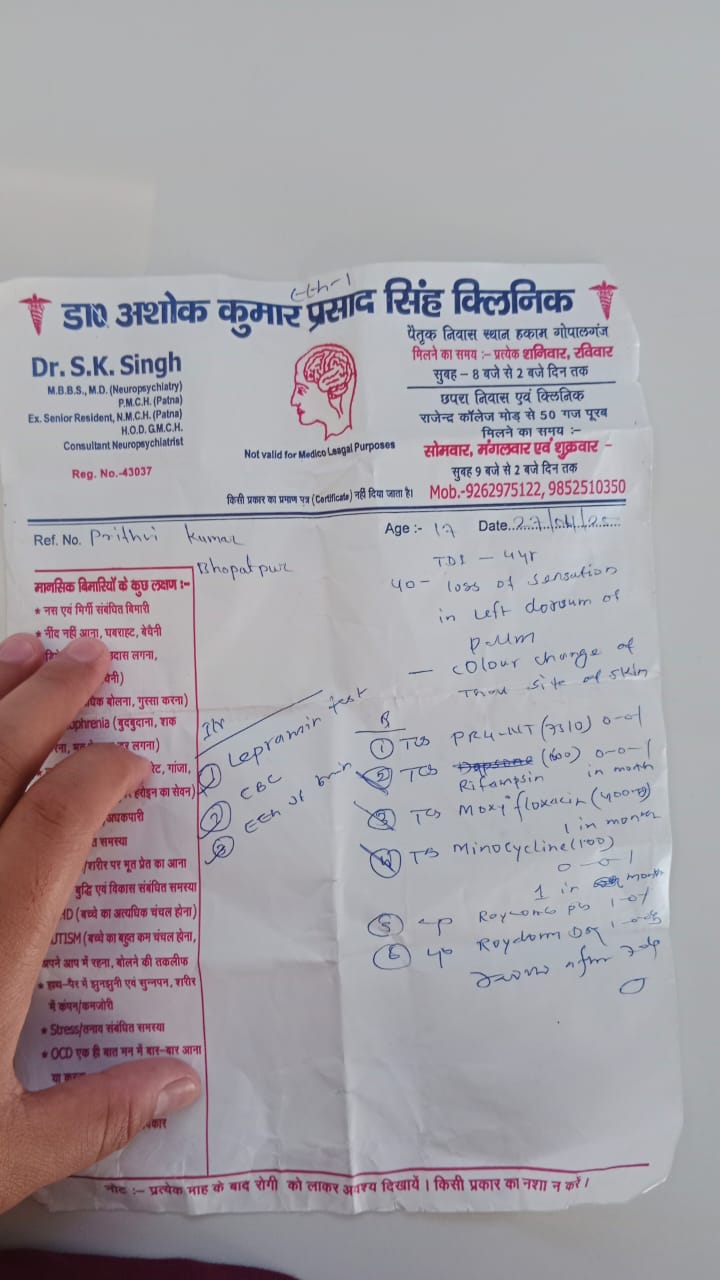 डा0 अशोक कुमार प्रसाद सिंह क्लिनिक
Dr. S.K. Singh
M.B.B.S., M.D. (Neuropsychiatry)
P.M.C.H. (Patna)
Ex. Senior Resident, N.M.C.H. (Patna)
H.O.D. G.M.C.H.
Consultant Neuropsychiatrist
Reg. No.-43037
Not valid for Medico Leagal Purposes
पैतृक निवास स्थान हकाम गोपालगंज
मिलने का समय :– प्रत्येक शनिवार, रविवार
सुबह – 8 बजे से 2 बजे दिन तक
छपरा निवास एवं क्लिनिक
राजेन्द्र कॉलेज मोड़ से 50 गज पूरब
मिलने का समय :–
सोमवार, मंगलवार एवं शुक्रवार –
सुबह 9 बजे से 2 बजे दिन तक
किसी प्रकार का प्रमाण पत्र (Certificate) नहीं दिया जाता है।
Mob.-9262975122, 9852510350
Ref. No. Prithvi Kumar
Age :- 17 Date..27/
Bhopatpur
मानसिक बिमारियों के कुछ लक्षण :–
* नस एवं मिर्गी संबंधित बिमारी
* नींद नहीं आना, घबराहट, बेचैनी
दास लगना,
बोलना, गुस्सा करना)
phrenia (बुदबुदाना, शक
लगना)
गांजा,
का सेवन)
अधकपारी
समस्या
/शरीर पर भूत प्रेत का आना
बुद्धि एवं विकास संबंधित समस्या
HD (बच्चे का अत्यधिक चंचल होना)
UTISM (बच्चे का बहुत कम चंचल होना,
अपने आप में रहना, बोलने की तकलीफ
* हाथ-पैर में झुनझुनी एवं सुन्नपन, शरीर
में कंपन/कमजोरी
* Stress/तनाव संबंधित समस्या
* OCD एक ही बात मन में बार-बार आना
या
loss of sensation
in left dorsum of
palm
— colour change of
site of skin
① Lepramin test
② CBC
③ EEG of brain
R
① Tab PR4-NT (7510) 0-01
② Tab (600) 0-0-1
Rifampsin in month
③ Tab Moxifloxacin (400mg)
1 in month
④ Tab Minocycline (100)
0-0-1
1 in month
⑤
⑥
after
नोट :– प्रत्येक माह के बाद रोगी को लाकर अवश्य दिखायें। किसी प्रकार का नशा न करें।